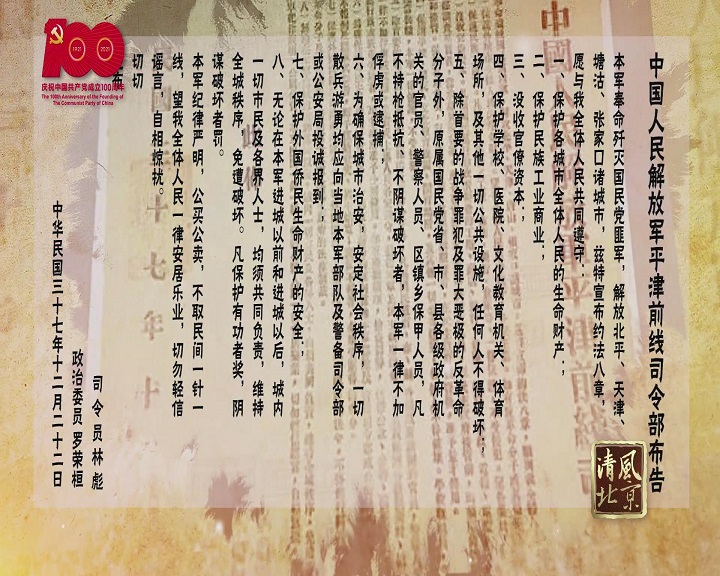 1921 2021
庆祝中国共产党成立100周年
The 100th Anniversary of the Founding of
The Communist Party of China
中国人民解放军平津前线司令部布告
本军奉命歼灭国民党匪军，解放北平、天津、
塘沽、张家口诸城市，兹特宣布约法八章，
愿与我全体人民共同遵守：
一、保护各城市全体人民的生命财产；
二、保护民族工业商业；
三、没收官僚资本；
四、保护学校、医院、文化教育机关、体育
场所，及其他一切公共设施，任何人不得破坏；
五、除首要的战争罪犯及罪大恶极的反革命
分子外，原属国民党省、市、县各级政府机
关的官员、警察人员、区镇乡保甲人员，凡
不持枪抵抗、不阴谋破坏者，本军一律不加
俘虏或逮捕；
六、为确保城市治安，安定社会秩序，一切
散兵游勇均应向当地本军部队及警备司令部
或公安局投诚报到；
七、保护外国侨民生命财产的安全；
八、无论在本军进城以前和进城以后，城内
一切市民及各界人士，均须共同负责，维持
全城秩序，免遭破坏。凡保护有功者奖，阴
谋破坏者罚。
本军纪律严明，公买公卖，不取民间一针一
线，望我全体人民一律安居乐业，切勿轻信
谣言，自相惊扰。
切切
布
司令员林彪
政治委员罗荣桓
中华民国三十七年十二月二十二日
清風北京